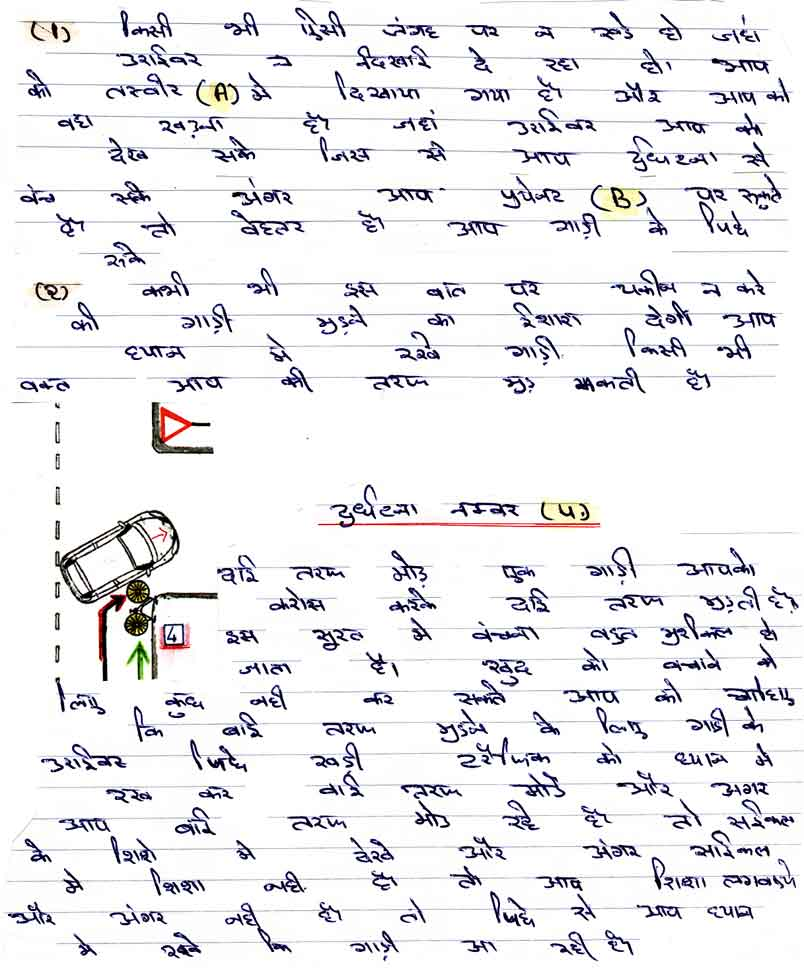 (1) किसी भी ऐसी जंगह पर न रूके हो जहां
डराईवर न दिखाई दे रहा हो। आप
को तस्वीर (A) मे दिखाया गया है। और आप को
वहा खड़ना है। जहां डराईवर आप को
देख सके जिस से आप दुर्घटना से
बंच सके अंगर आप पुऐनट (B) पर रूकते
है। तो बेहतर है। आप गाड़ी के पिछे
रूके
(२) कभी भी इस बात पर यकीन न करे
की गाड़ी मुड़ने का ईशारा देगी आप
ध्यान मे रखे गाड़ी किसी भी
वक्त आप की तरफ मुड़ सकती है।
दुर्घटना नम्बर (4)
दाई तरफ मोड़ एक गाड़ी आपको
करोस करके दाई तरफ मुड़ती है।
4
इस सूरत मे बंचना बहुत मुशीकल हो
जाता है। खुद को बचाने के
लिए कुछ नही कर सकते आप को चाहिए
कि बाई तरफ मुड़ने के लिए गाड़ी के
डराईवर पिछे खड़ी टरैफिक को ध्यान मे
रख कर बाई तरफ मोडें और अगर
आप बाई तरफ मोड रहे है। तो साईकल
के शिशे मे देखे और अंगर साईकल
मे शिशा नही है। तो आप शिशा लगवाये
और अंगर नही है। तो पिछे से आप ध्यान
मे रखे कि गाड़ी आ रही है।